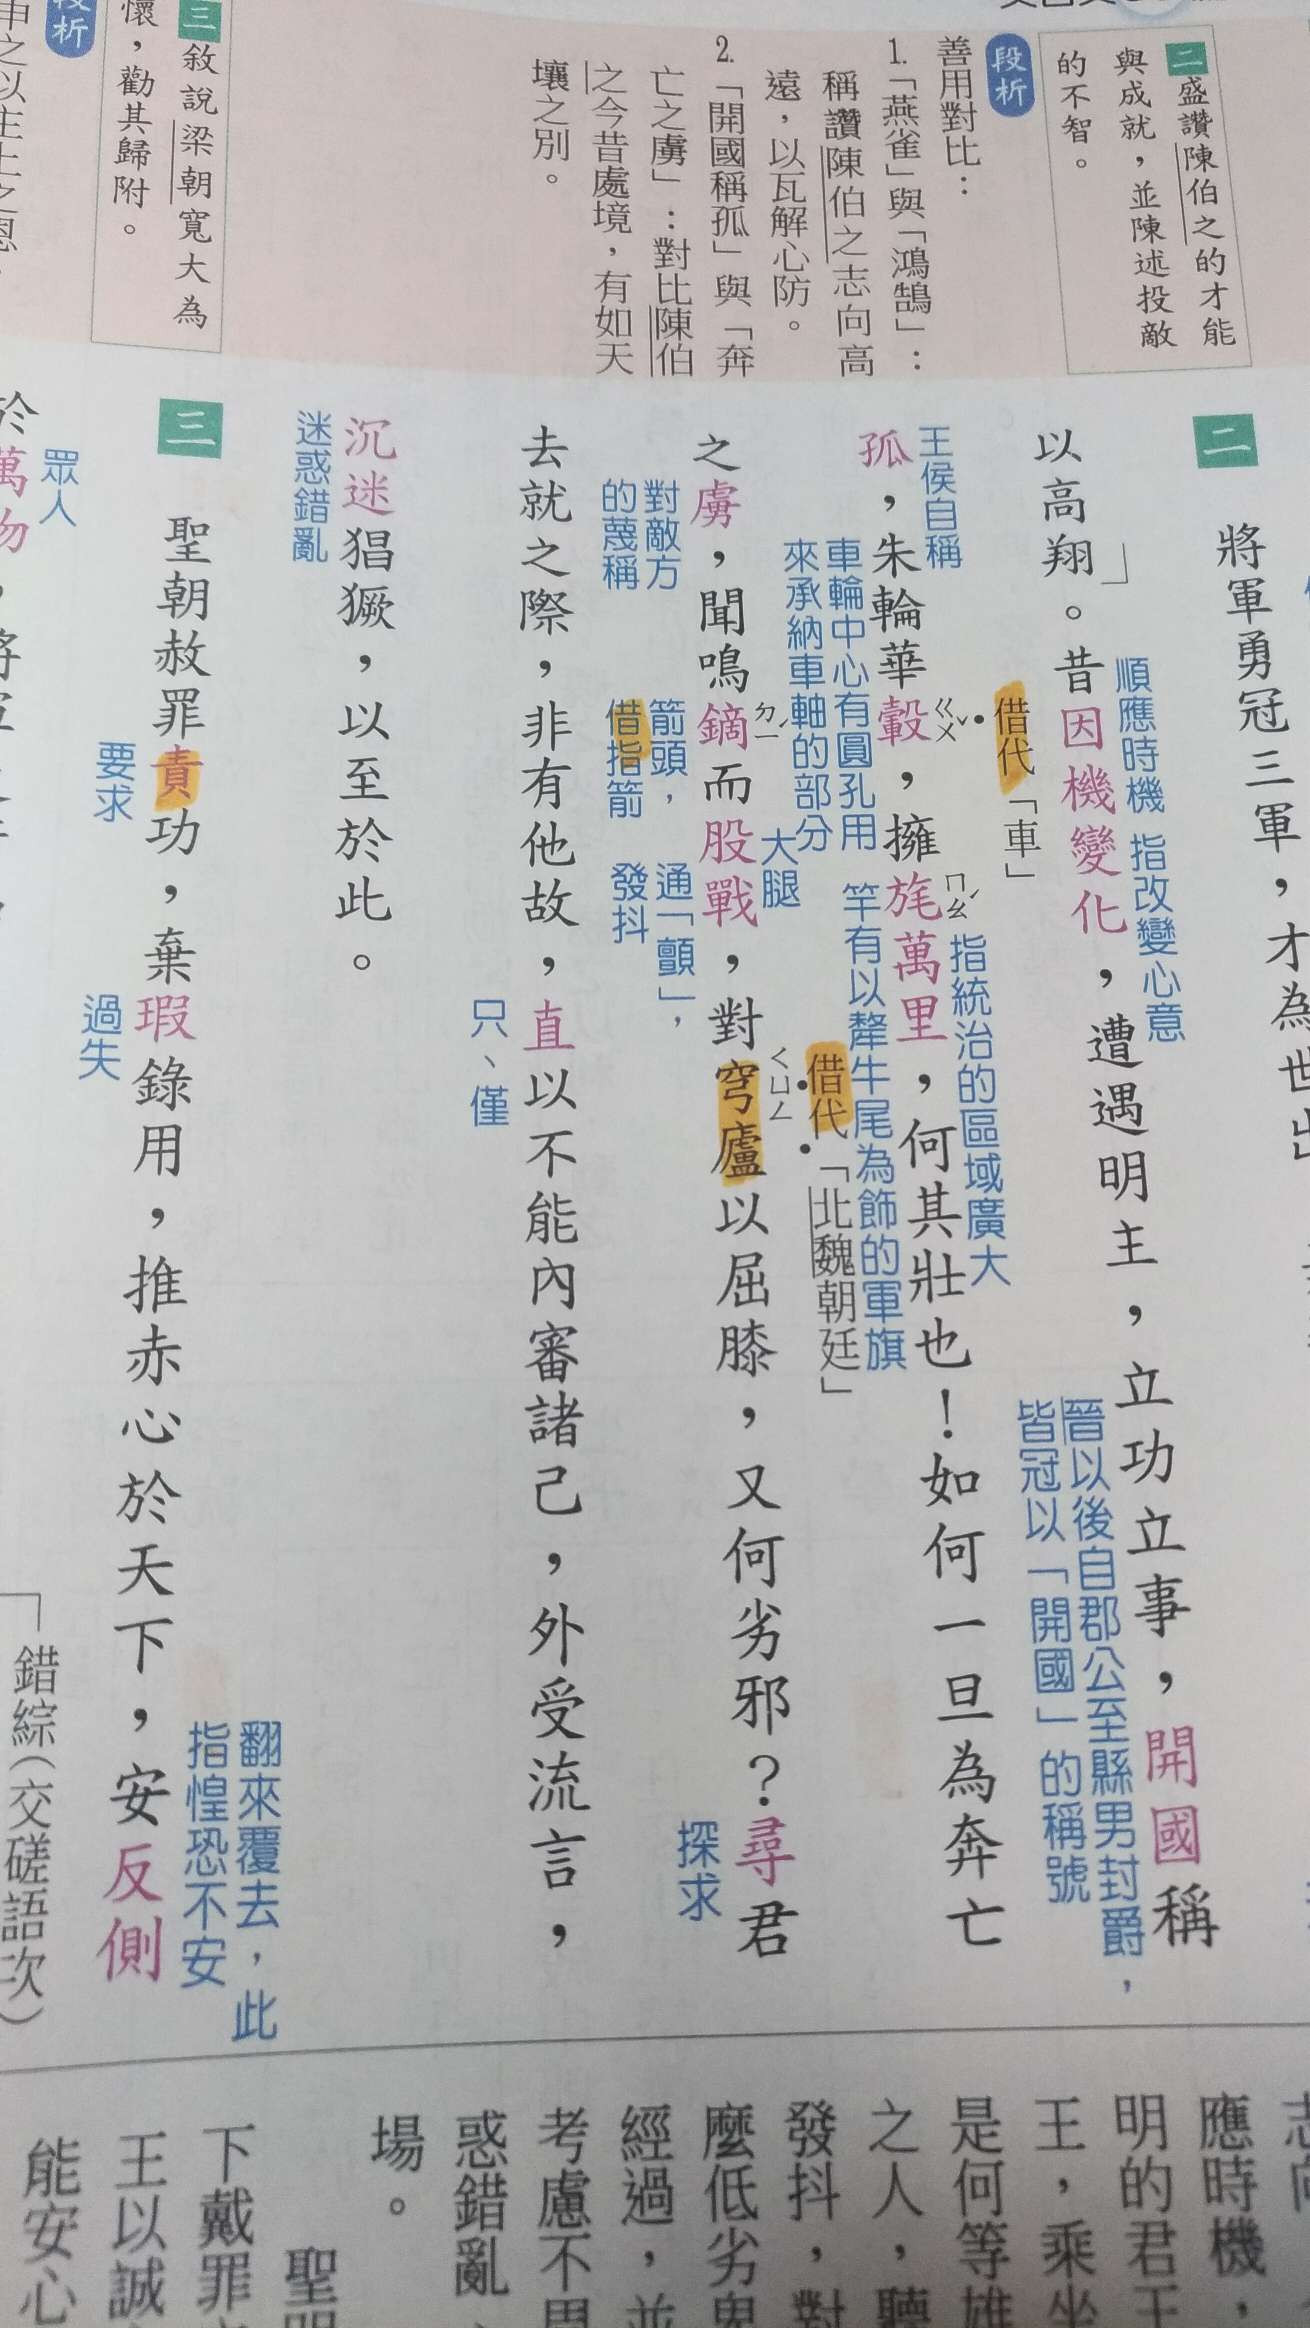 二 盛讚陳伯之的才能
與成就，並陳述投敵
的不智。
段析
善用對比：
1.「燕雀」與「鴻鵠」：
稱讚陳伯之志向高
遠，以瓦解心防。
2.「開國稱孤」與「奔
亡之虜」：對比陳伯
之今昔處境，有如天
壤之別。
三 敘說梁朝寬大為
懷，勸其歸附。
段析
申之以主上之恩，
二 將軍勇冠三軍，才為世出
以高翔。」昔因機變化，遭遇明主，立功立事，開國稱
順應時機
指改變心意
晉以後自郡公至縣男封爵，
皆冠以「開國」的稱號
借代「車」
王侯自稱
孤，朱輪華轂，擁旄萬里，何其壯也！如何一旦為奔亡
ㄍㄨˇ
ㄇㄠˊ
指統治的區域廣大
車輪中心有圓孔用
來承納車軸的部分
竿有以犛牛尾為飾的軍旗
借代「北魏朝廷」
之虜，聞鳴鏑而股戰，對穹廬以屈膝，又何劣邪？尋君
ㄉㄧˊ
大腿
ㄑㄩㄥ
對敵方
的蔑稱
箭頭，
借指箭
通「顫」，
發抖
探求
去就之際，非有他故，直以不能內審諸己，外受流言，
只、僅
沉迷猖獗，以至於此。
迷惑錯亂
三 聖朝赦罪責功，棄瑕錄用，推赤心於天下，安反側
翻來覆去，此
指惶恐不安
要求
過失
眾人
錯綜（交磋語次）
於萬物，將軍
應時機，
明的君王
王，乘坐
是何等雄
之人，聽
發抖，對
麼低劣卑
經過，並
考慮不周
惑錯亂，
場。
聖明
下戴罪
王以誠
能安心